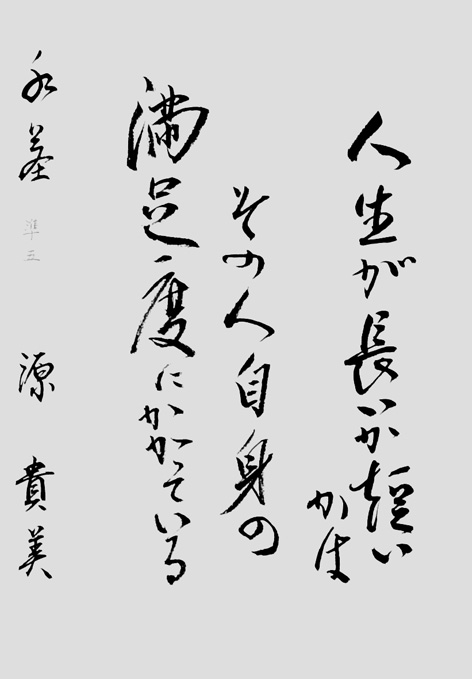 人生が長いか短い
かは
その人自身の
満足度にかかっている
永基
準五
源 貴美